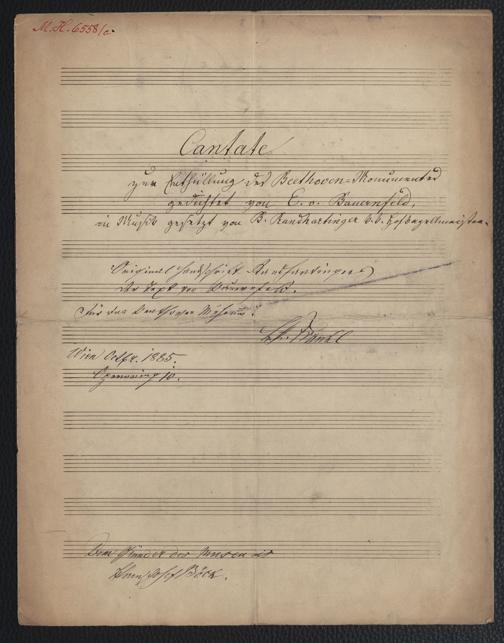 M. H. 6558/c.
Cantate
zur Enthüllung des Beethoven=Monumentes
gedichtet von E. v. Bauernfeld,
in Musik gesetzt von B. Randhartinger k. k. Hofkapellmeister.
Original Handschrift Randhartingers
Text von Bauernfeld.
für das Beethoven Museum.
Wien 1885.
Opernring 10.
Dem Gründer des Museums
Herrn Josef Böck.